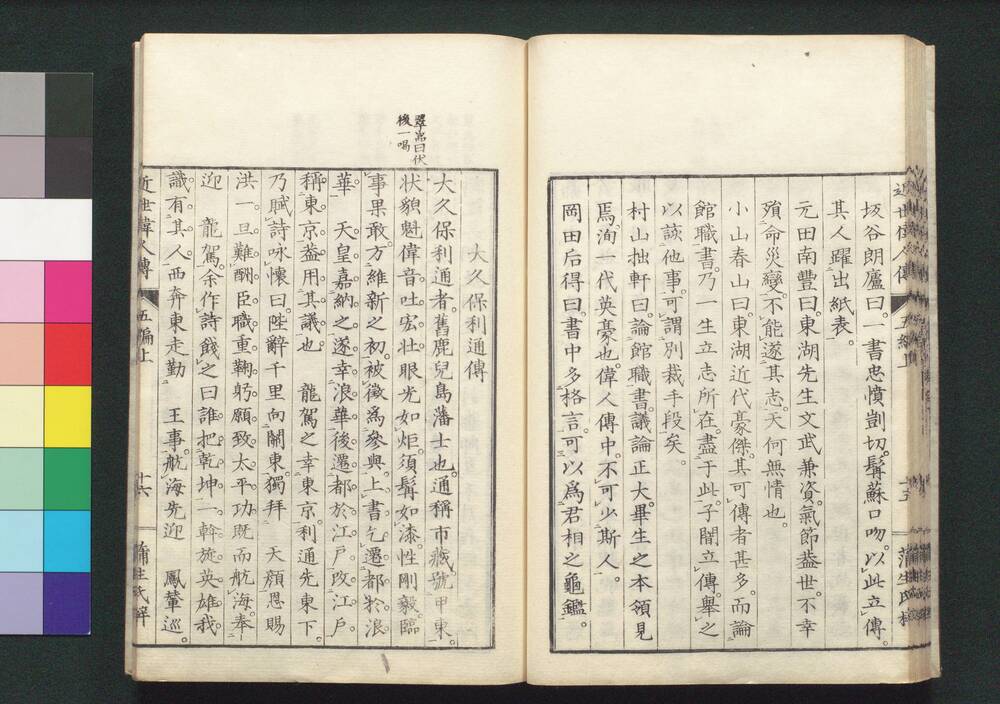 坂谷朗廬曰。一書忠憤剴切。髯蘇口吻。以此立傳。
其人躍出紙表。
元田南豐曰。東湖先生文武兼資。氣節蓋世。不幸
殞命災變。不能遂其志。天何無情也。
小山春山曰。東湖近代豪傑。其可傳者甚多。而論
館職書。乃一生立志所在。盡于此。子闇立傳。舉之
以該他事。可謂別裁手段矣。
村山拙軒曰。論館職書。議論正大。畢生之本領見
焉。洵一代英豪也。偉人傳中。不可少斯人。
岡田后得曰。書中多格言。可以爲君相之龜鑑。
近世偉人傳
大久保利通傳
大久保利通者。舊鹿兒島藩士也。通稱市藏。號甲東。
狀貌魁偉。音吐宏壯。眼光如炬。須髯如漆。性剛毅。臨
事果敢。方維新之初。被徵爲參與。上書乞遷都於浪
華 天皇嘉納之。遂幸浪華。後遷都於江戶。改江戶
稱東京。蓋用其議也 龍駕之幸東京。利通先東下。
乃賦詩咏懷曰。陛辭千里向關東。獨拜 天顏恩賜
洪。一旦難酬臣職重。鞠躬願致太平功。既而航海奉
迎 龍駕。余作詩餞之曰。誰把乾坤一斡旋。英雄我
識有其人。西奔東走勤 王事。航海先迎 鳳輦巡。
近世偉人傳 五編上 十六 蒲生氏梓
翠嵐曰伏
後一喝